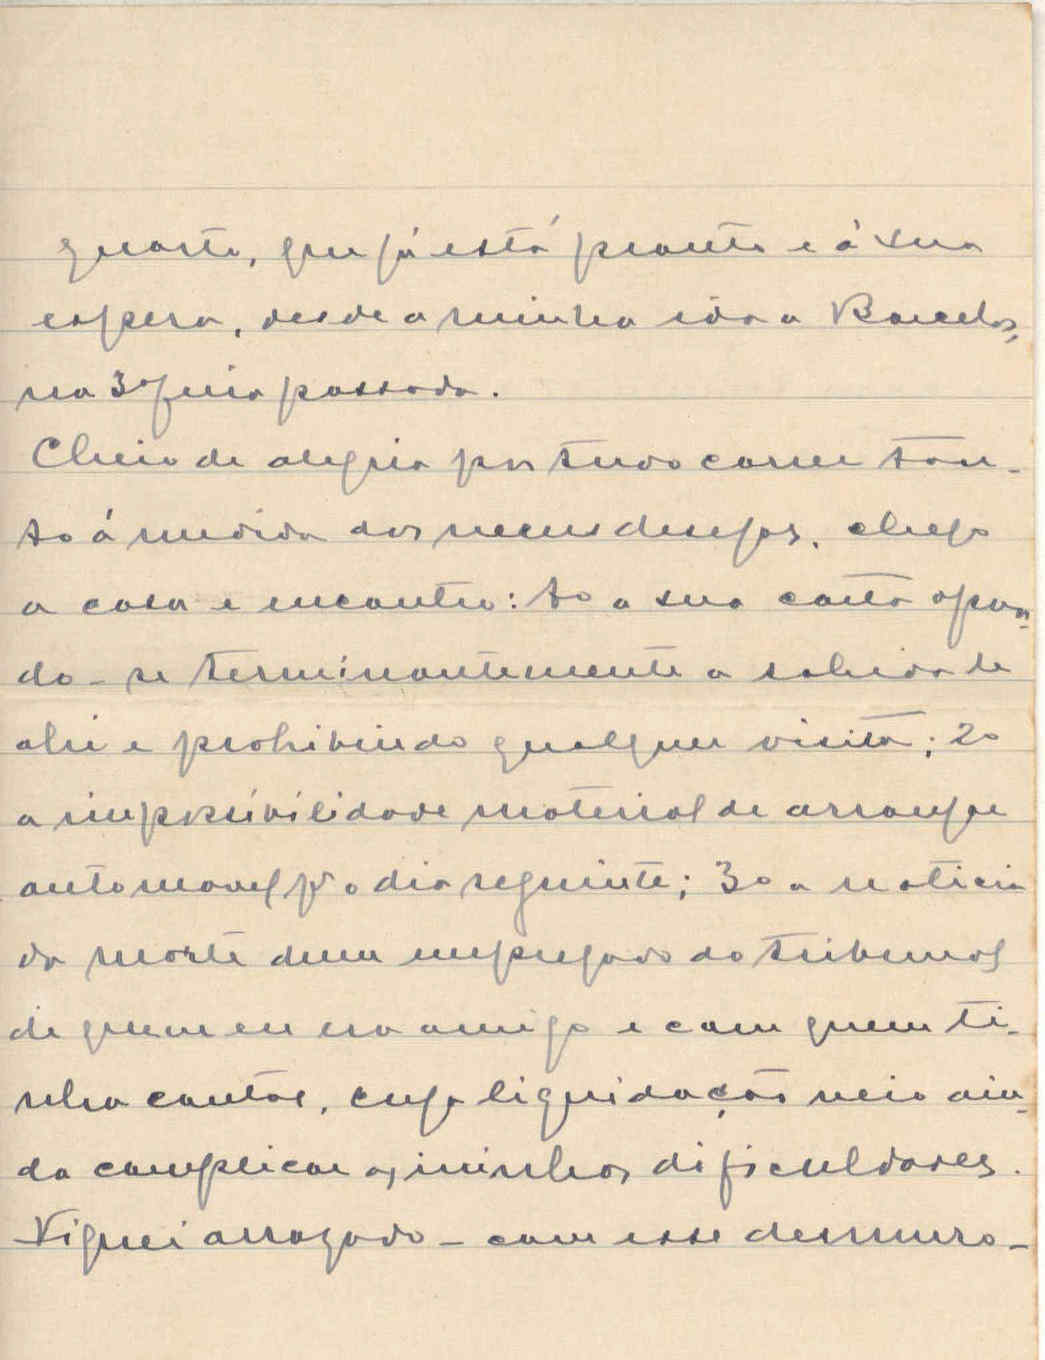 quarto, que já está pronto e á sua
espera, desde a minha ida a Barcelos,
na 3ª feira passada.
Cheio de alegria por tudo correr tan-
to á medida dos meus desejos, chego
a casa e encontro: 1o a sua carta opon-
do-se terminantemente a sahida de
ahi e prohibindo qualquer visita; 2o
a impossibilidade material de arranjar
automovel pª o dia seguinte; 3o a noticia
da morte dum empregado do tribunal
de quem eu era amigo e com quem ti-
nha contas, cuja liquidação veio ain-
da complicar as minhas dificuldades.
Fiquei arrazado - com esse desmoro-